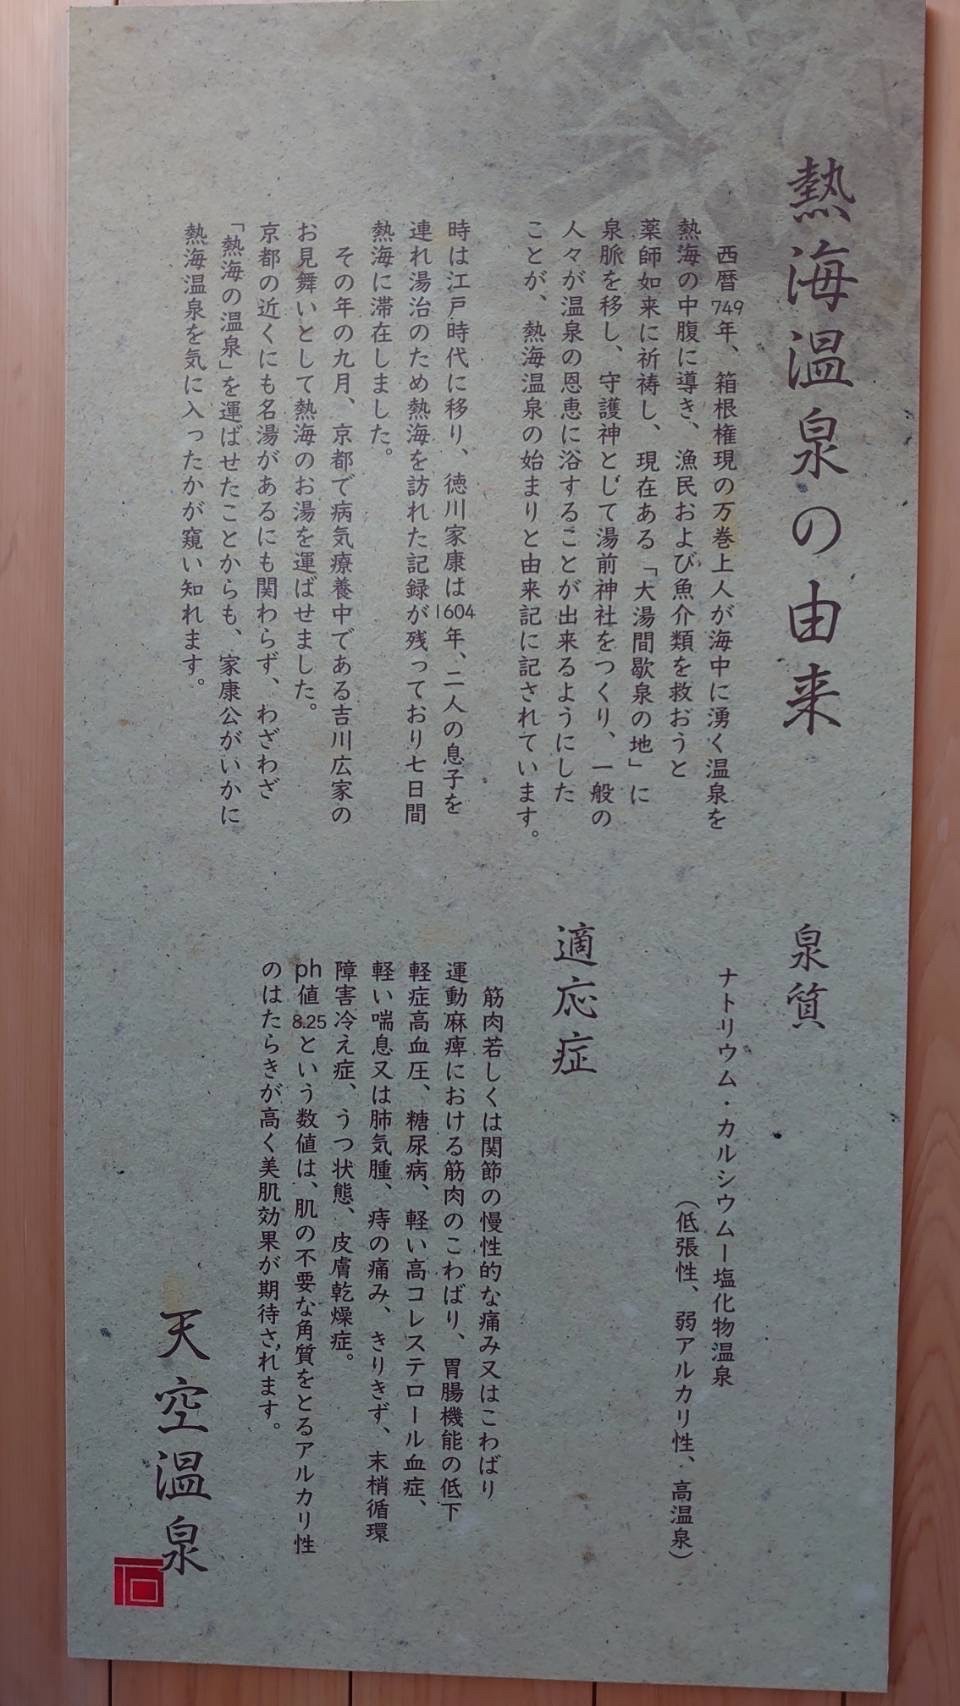 熱海温泉の由来
西暦749年、箱根権現の万巻上人が海中に湧く温泉を
熱海の中腹に導き、漁民および魚介類を救おうと
薬師如来に祈祷し、現在ある「大湯間歇泉の地」に
泉脈を移し、守護神として湯前神社をつくり、一般の
人々が温泉の恩恵に浴することが出来るようにした
ことが、熱海温泉の始まりと由来記に記されています。
時は江戸時代に移り、徳川家康は1604年、二人の息子を
連れ湯治のため熱海を訪れた記録が残っており七日間
熱海に滞在しました。
その年の九月、京都で病気療養中である吉川広家の
お見舞いとして熱海のお湯を運ばせました。
京都の近くにも名湯があるにも関わらず、わざわざ
「熱海の温泉」を運ばせたことからも、家康公がいかに
熱海温泉を気に入ったかが窺い知れます。
泉質
ナトリウム・カルシウムー塩化物温泉
(低張性、弱アルカリ性、高温泉)
適応症
筋肉若しくは関節の慢性的な痛み又はこわばり
運動麻痺における筋肉のこわばり、胃腸機能の低下
軽症高血圧、糖尿病、軽い高コレステロール血症、
軽い喘息又は肺気腫、痔の痛み、きりきず、末梢循環
障害冷え症、うつ状態、皮膚乾燥症。
ph値8.25という数値は、肌の不要な角質をとるアルカリ性
のはたらきが高く美肌効果が期待されます。
天空温泉